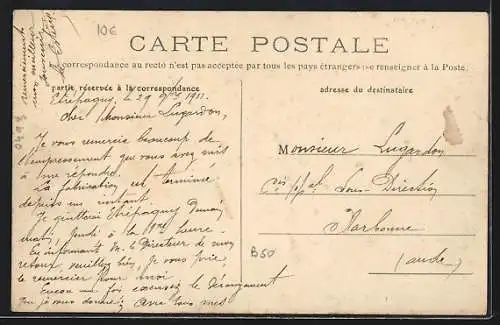 10€
CARTE POSTALE
La correspondance au recto n'est pas acceptée par tous les pays étrangers (se renseigner à la Poste.
partie réservée à la correspondance
adresse du destinataire
Etrépagny, le 29 1911.
Cher Monsieur Lugardon,
Je vous remercie beaucoup de
l'empressement que vous avez mis
à me répondre.
La fabrication est terminée
depuis un instant.
Je quitterai Etrépagny
matin, jeudi à la 1re heure.
En informant M. le Directeur de mon
retour, veuillez bien, je vous prie,
le remercier pour moi
Encore une fois excusez le dérangement
que je vous donne; avec tous mes
remerciements
mon meilleur
souvenir
0493
Monsieur Lugardon
Sous-Direction
Narbonne
(Aude)
B50